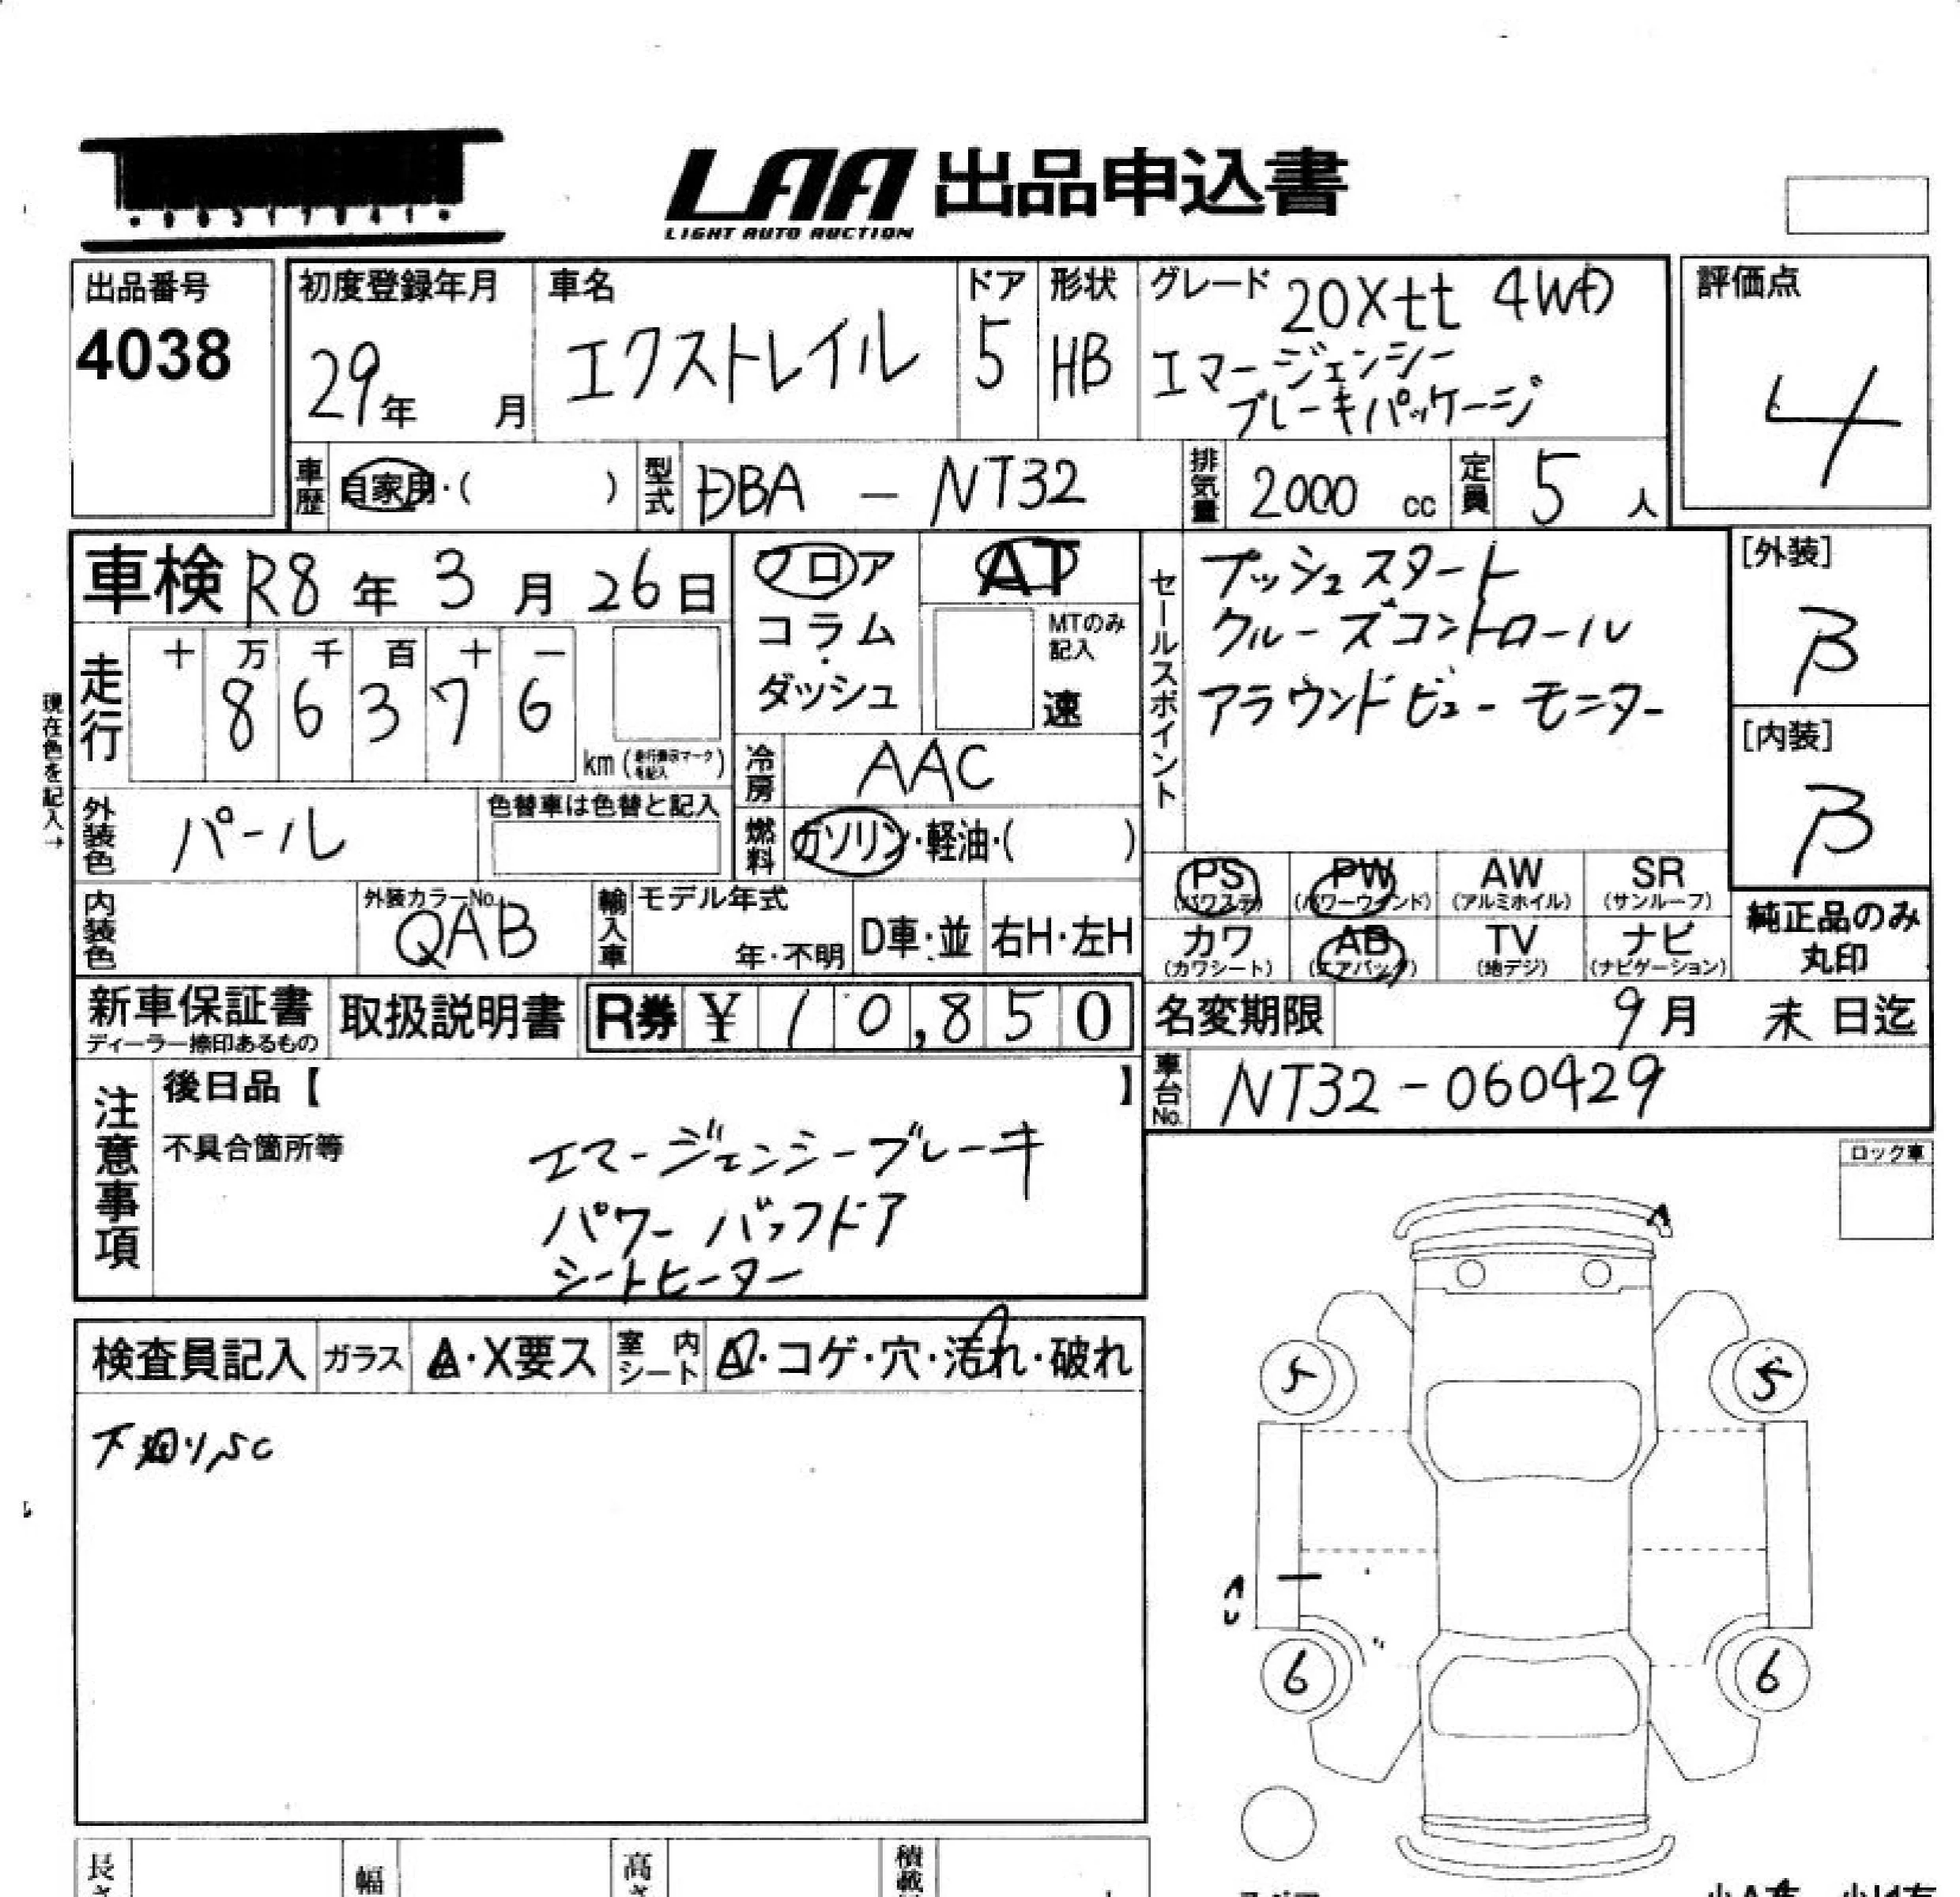 LAA 出品申込書
LIGHT AUTO AUCTION
出品番号
4038
初度登録年月
29年 月
車名
エクストレイル
ドア
5
形状
HB
グレード 20Xtt 4WD
エマージェンシー
ブレーキパッケージ
評価点
4
車歴 自家用・( )
型式 DBA - NT32
排気量 2000 cc
定員 5 人
車検 R8年 3月 26日
フロア
コラム・
ダッシュ
AT
MTのみ
記入
速
現在色を記入→
走行
十 万 千 百 十 一
8 6 3 7 6
km (走行表示マークを記入)
セールスポイント
プッシュスタート
クルーズコントロール
アラウンドビューモニター
[外装]
B
[内装]
B
冷房 AAC
燃料 ガソリン・軽油・( )
外装色 パール
色替車は色替と記入
内装色
外装カラーNo.
QAB
輸入車
モデル年式
年・不明
D車・並
右H・左H
PS (パワステ)
PW (パワーウインド)
AW (アルミホイル)
SR (サンルーフ)
カワ (カワシート)
AB (エアバック)
TV (地デジ)
ナビ (ナビゲーション)
純正品のみ
丸印
新車保証書
ディーラー捺印あるもの
取扱説明書
R券 ¥ 10,850
名変期限 9月 末 日迄
車台No. NT32-060429
注意事項
後日品【 】
不具合箇所等
エマージェンシーブレーキ
パワーバックドア
シートヒーター
ロック車
検査員記入
ガラス A・X要ス
室内シート A・コゲ・穴・汚れ・破れ
下廻りSC
A
5 5
6 6
長さ
幅
高さ
積載